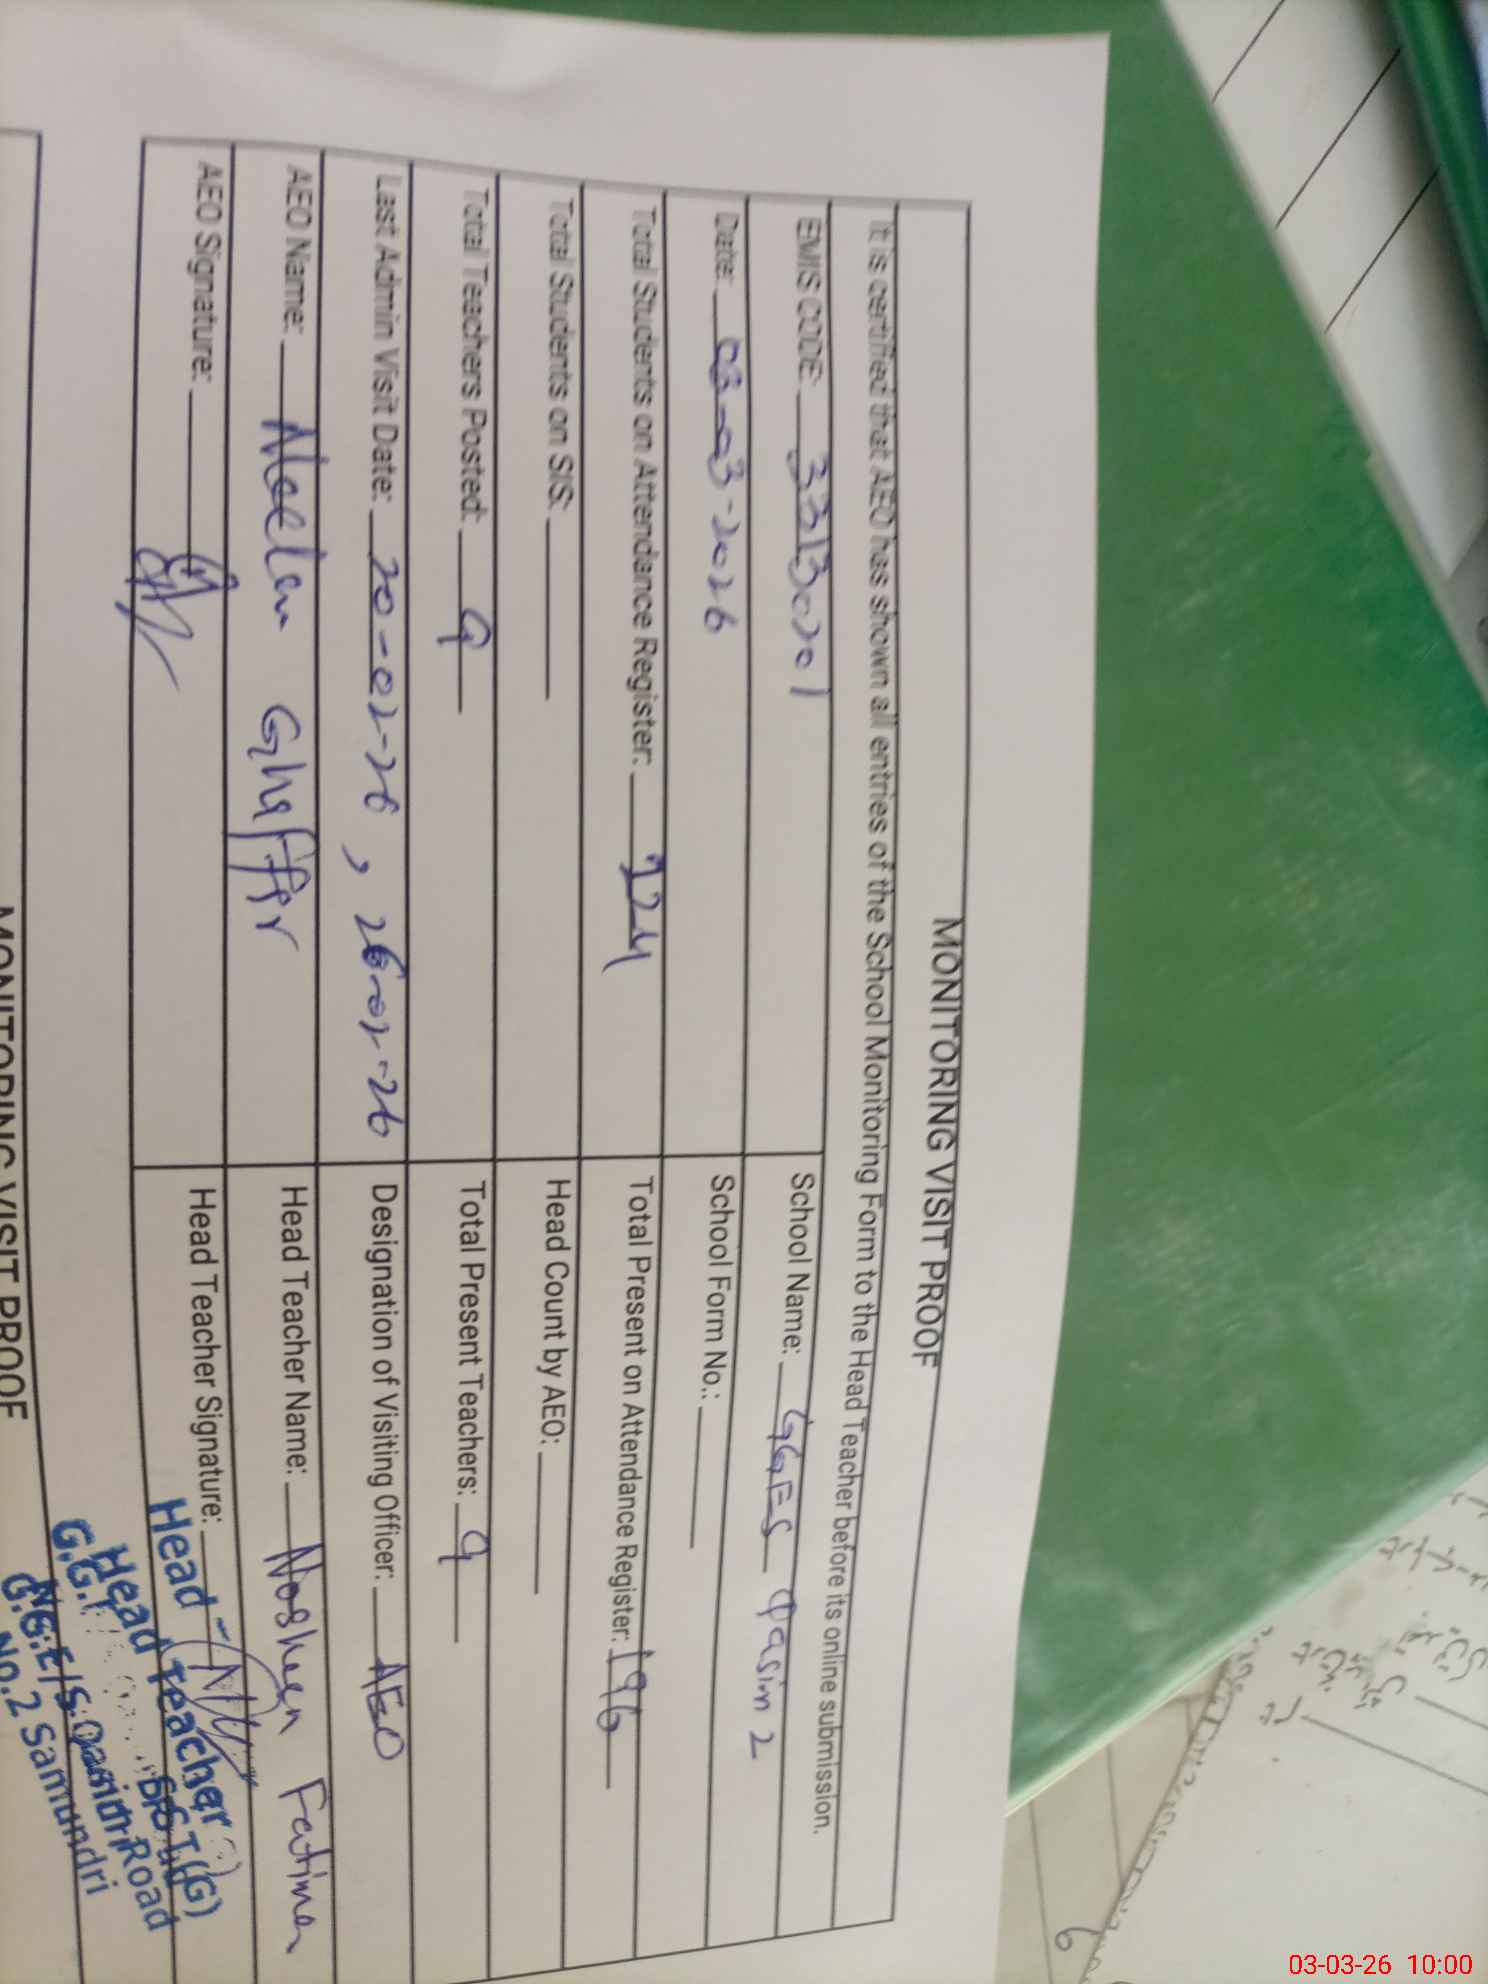 MONITORING VISIT PROOF
It is certified that AEO has shown all entries of the School Monitoring Form to the Head Teacher before its online submission.
EMIS CODE: 33130201 School Name: GGES Qasim 2
Date: 03-03-2026 School Form No.:
Total Students on Attendance Register: 224 Total Present on Attendance Register: 196
Total Students on SIS: Head Count by AEO:
Total Teachers Posted: 9 Total Present Teachers: 9
Last Admin Visit Date: 20-02-26, 26-02-26 Designation of Visiting Officer: AEO
AEO Name: Neelam Ghaffar Head Teacher Name: Nosheen Fatima
AEO Signature: Head Teacher Signature:
Head Teacher
Head Teacher
Road
No.2 Samundri
MONITORING VISIT PROOF
6
03-03-26 10:00